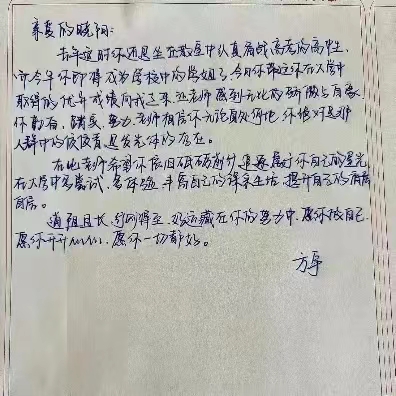 亲爱的晓钥:
去年这时你还是坐在教室中认真备战高考的高中生,
而今年你即将成为学校中的学姐了。今日你带这你在大学中
取得的优异成绩向我走来。让老师感到无比的骄傲与自豪。
你勤奋、踏实、努力。老师相信你无论身处何地,你绝对是那
人群中的佼佼者,是发光体的存在。
在此老师希望你依旧砥砺前行,追逐属于你自己的星光
在大学中多尝试,多体验,丰富自己的课余生活,提升自己的
自信。
道阻且长,行则将至,好运藏在你的努力中,愿你
愿你开开心心,愿你一切都好。
方